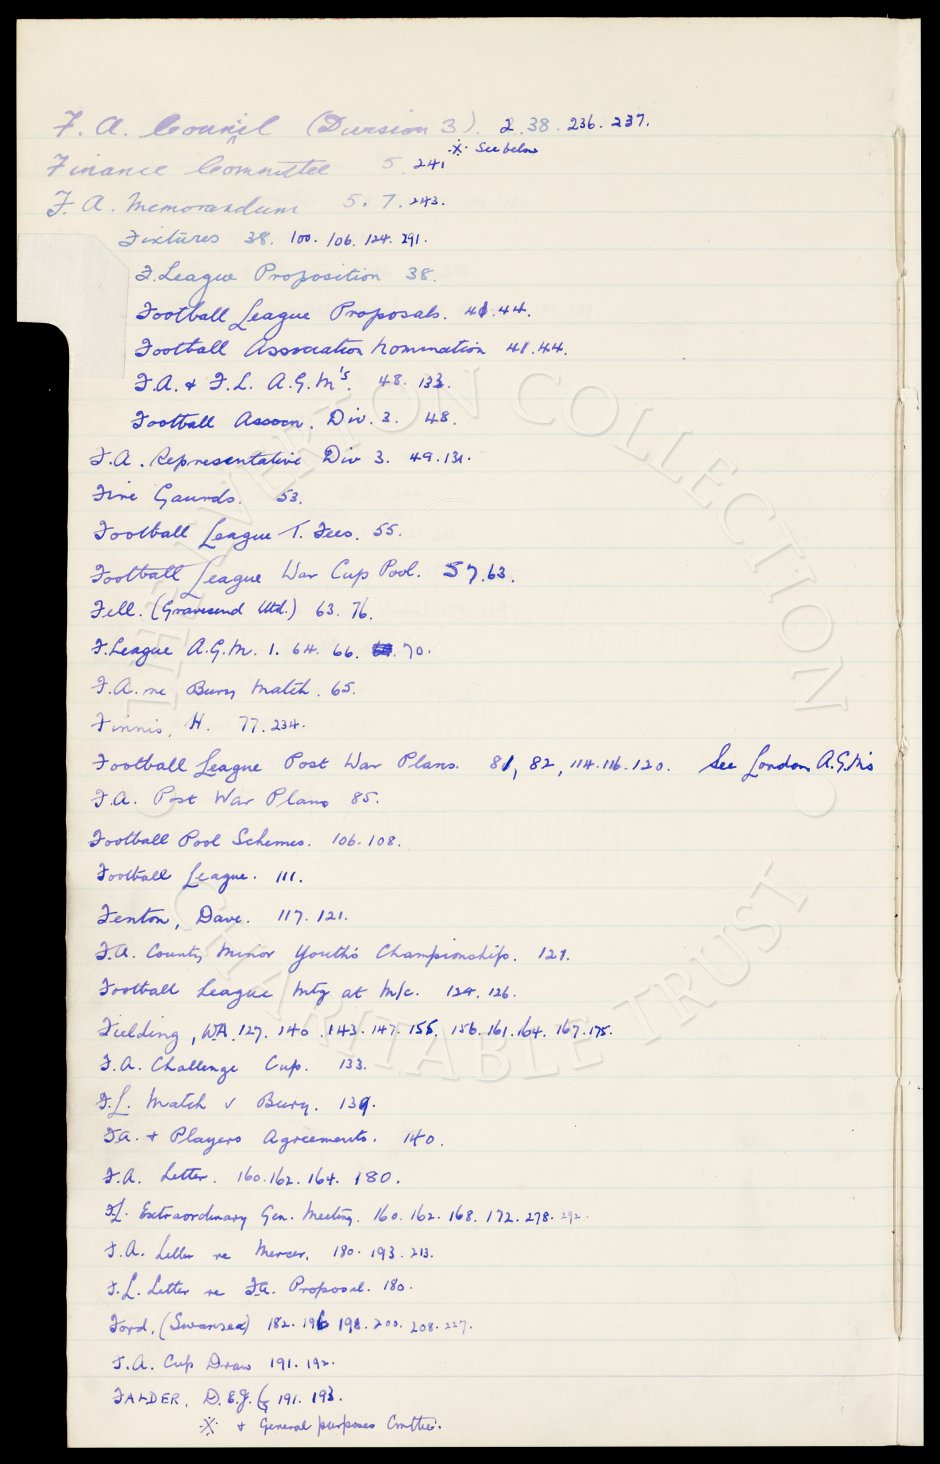 F. A. Council (Division 3). 2. 38. 236. 237.
Finance Committee 5. 241 ※ See below
F. A. Memorandum 5. 7. 243.
Fixtures 38. 100. 106. 124. 291.
F. League Proposition 38.
Football League Proposals. 41. 44.
Football Association Nomination 41. 44.
F.A. + F.L. A.G.M's. 48. 133.
Football Assocn. Div. 3. 48.
F.A. Representative Div 3. 49. 131.
Fire Gaurds. 53.
Football League T. Fees. 55.
Football League War Cup Pool. 57. 63.
Fell. (Gravesend Utd.) 63. 76.
F. League A.G.M. 1. 64. 66. 70.
F.A. re Bury Match. 65.
Finnis, H. 77. 234.
Football League Post War Plans. 81, 82, 114. 116. 120. See London A.G.M's
F.A. Post War Plans 85.
Football Pool Schemes. 106. 108.
Football League. 111.
Fenton, Dave. 117. 121.
F.A. County Minor Youth's Championship. 121.
Football League Mtg at M/c. 124. 126.
Fielding, W.A. 127. 140. 143. 147. 155. 156. 161. 164. 167. 175.
F.A. Challenge Cup. 133.
F.L. Match v Bury. 139.
F.A. + Players Agreements. 140.
F.A. Letter. 160. 162. 164. 180.
F.L. Extraordinary Gen. Meeting. 160. 162. 168. 172. 278. 292.
F.A. Letter re Mercer. 180. 193. 213.
F.L. Letter re F.A. Proposal. 180.
Ford, (Swansea) 182. 196 198. 200. 208. 227.
F.A. Cup Draw 191. 192.
FALDER, D.E.J. 191. 193.
※ + General purposes Cmttee.
THE EVERTON COLLECTION
CHARITABLE TRUST